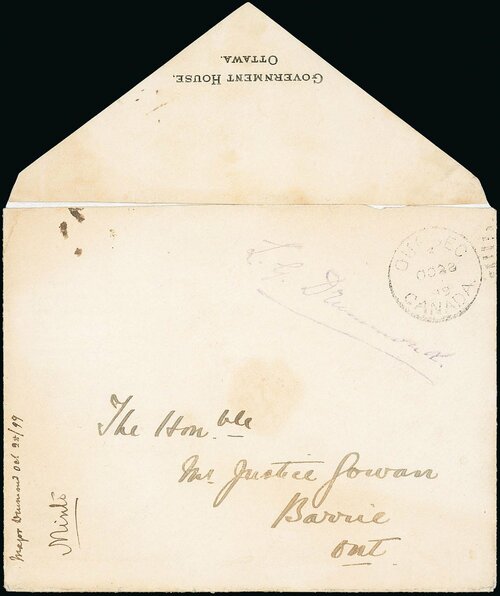 GOVERNMENT HOUSE.
OTTAWA.
L. G. Drummond.
QUEBEC
OC 28
99
CANADA
The Hon.ble
Mr Justice Gowan
Barrie
Ont.
Major Drummond Oct 28/99
Minto